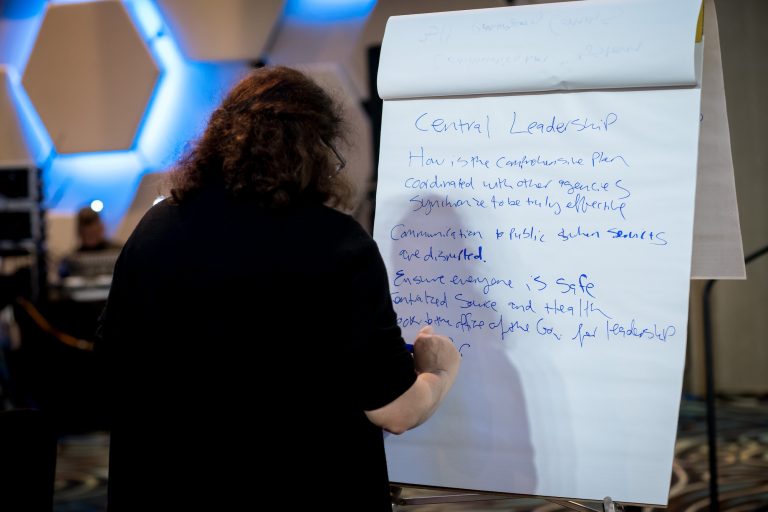 Central Leadership
How is the Comprehensive Plan
coordinated with other agencies
synchronize to be truly effective
Communication to Public when services
are disrupted.
Ensure everyone is safe
Centralized Source and Health
to the office of the Gov for leadership